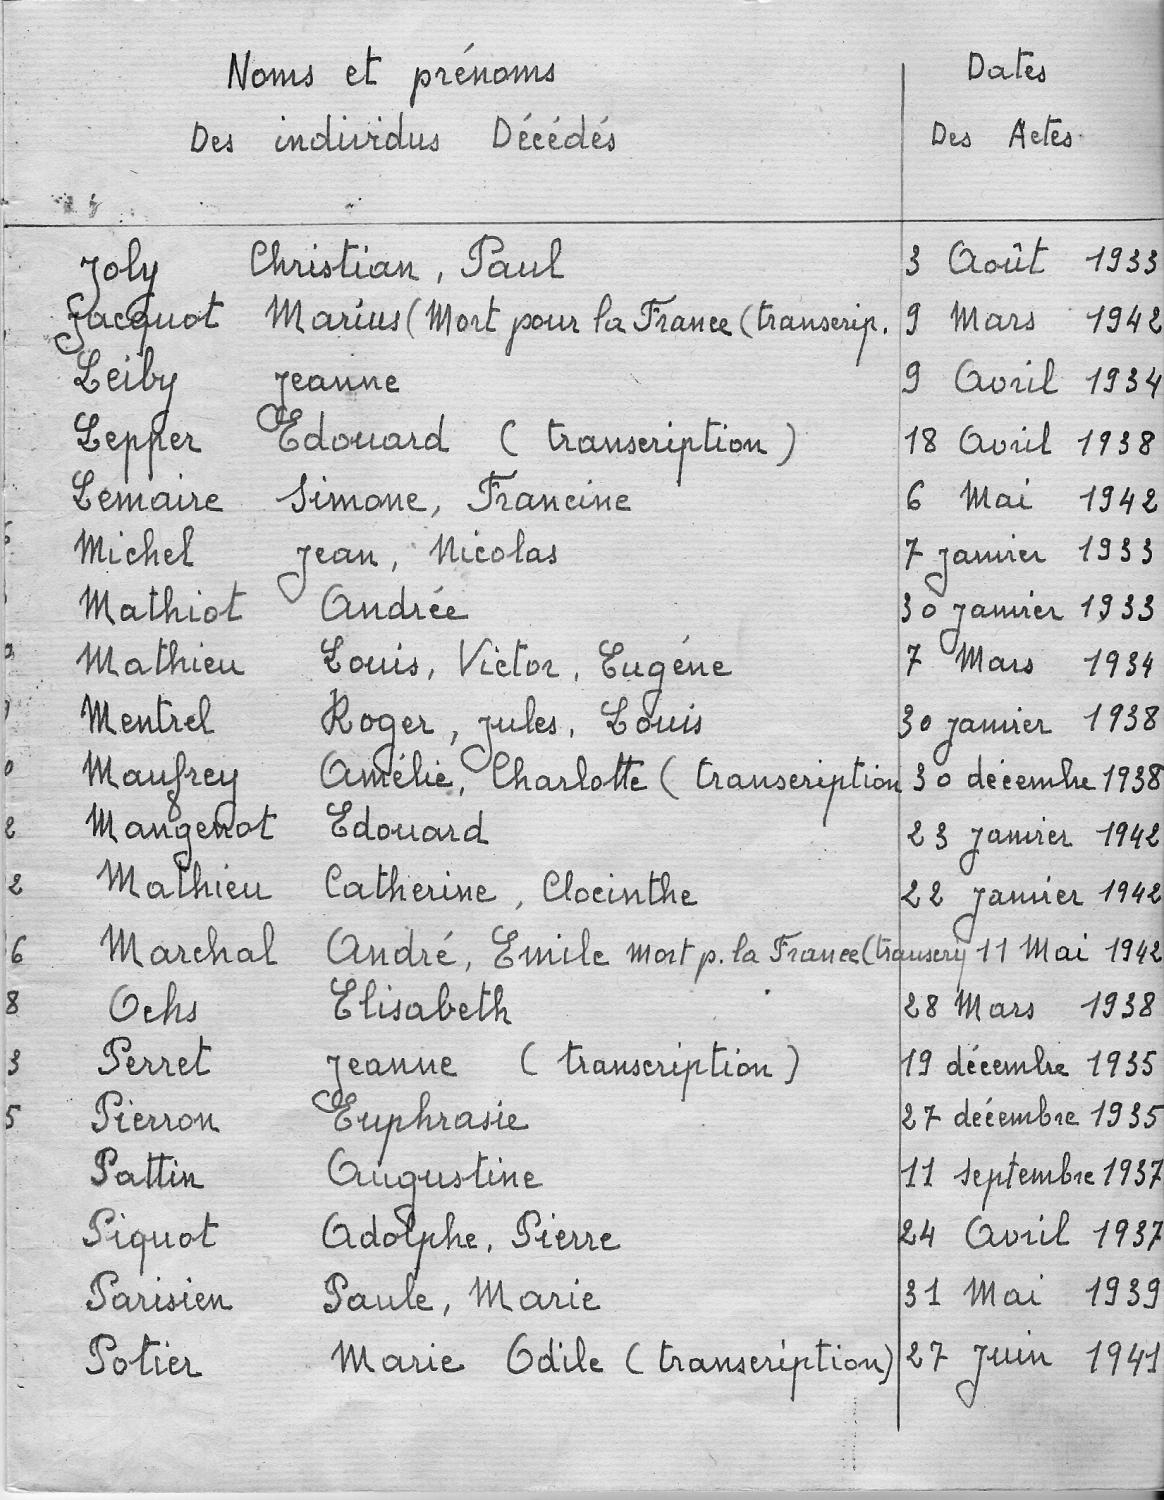 Noms et prénoms Dates
Des individus Décédés Des Actes
Joly Christian, Paul 3 Août 1933
Jacquot Marius (Mort pour la France (transcrip. 9 Mars 1942
Leiby Jeanne 9 Avril 1934
Lepper Edouard (transcription) 18 Avril 1938
Lemaire Simone, Francine 6 Mai 1942
Michel Jean, Nicolas 7 janvier 1933
Mathiot Andrée 30 janvier 1933
Mathieu Louis, Victor, Eugéne 7 Mars 1934
Mentrel Roger, Jules, Louis 30 janvier 1938
Maufrey Amélie, Charlotte (transcription 30 décembre 1938
2 Mangenot Edouard 23 janvier 1942
2 Mathieu Catherine, Clocinthe 22 janvier 1942
6 Marchal André, Emile mort p. la France (transcrip 11 Mai 1942
8 Ochs Elisabeth 28 Mars 1938
3 Perret Jeanne (transcription) 19 décembre 1935
5 Pierron Euphrasie 27 décembre 1935
Pattin Augustine 11 septembre 1937
Piquot Adolphe, Pierre 24 Avril 1937
Parisien Paule, Marie 31 Mai 1939
Potier Marie Odile (transcription) 27 Juin 1941